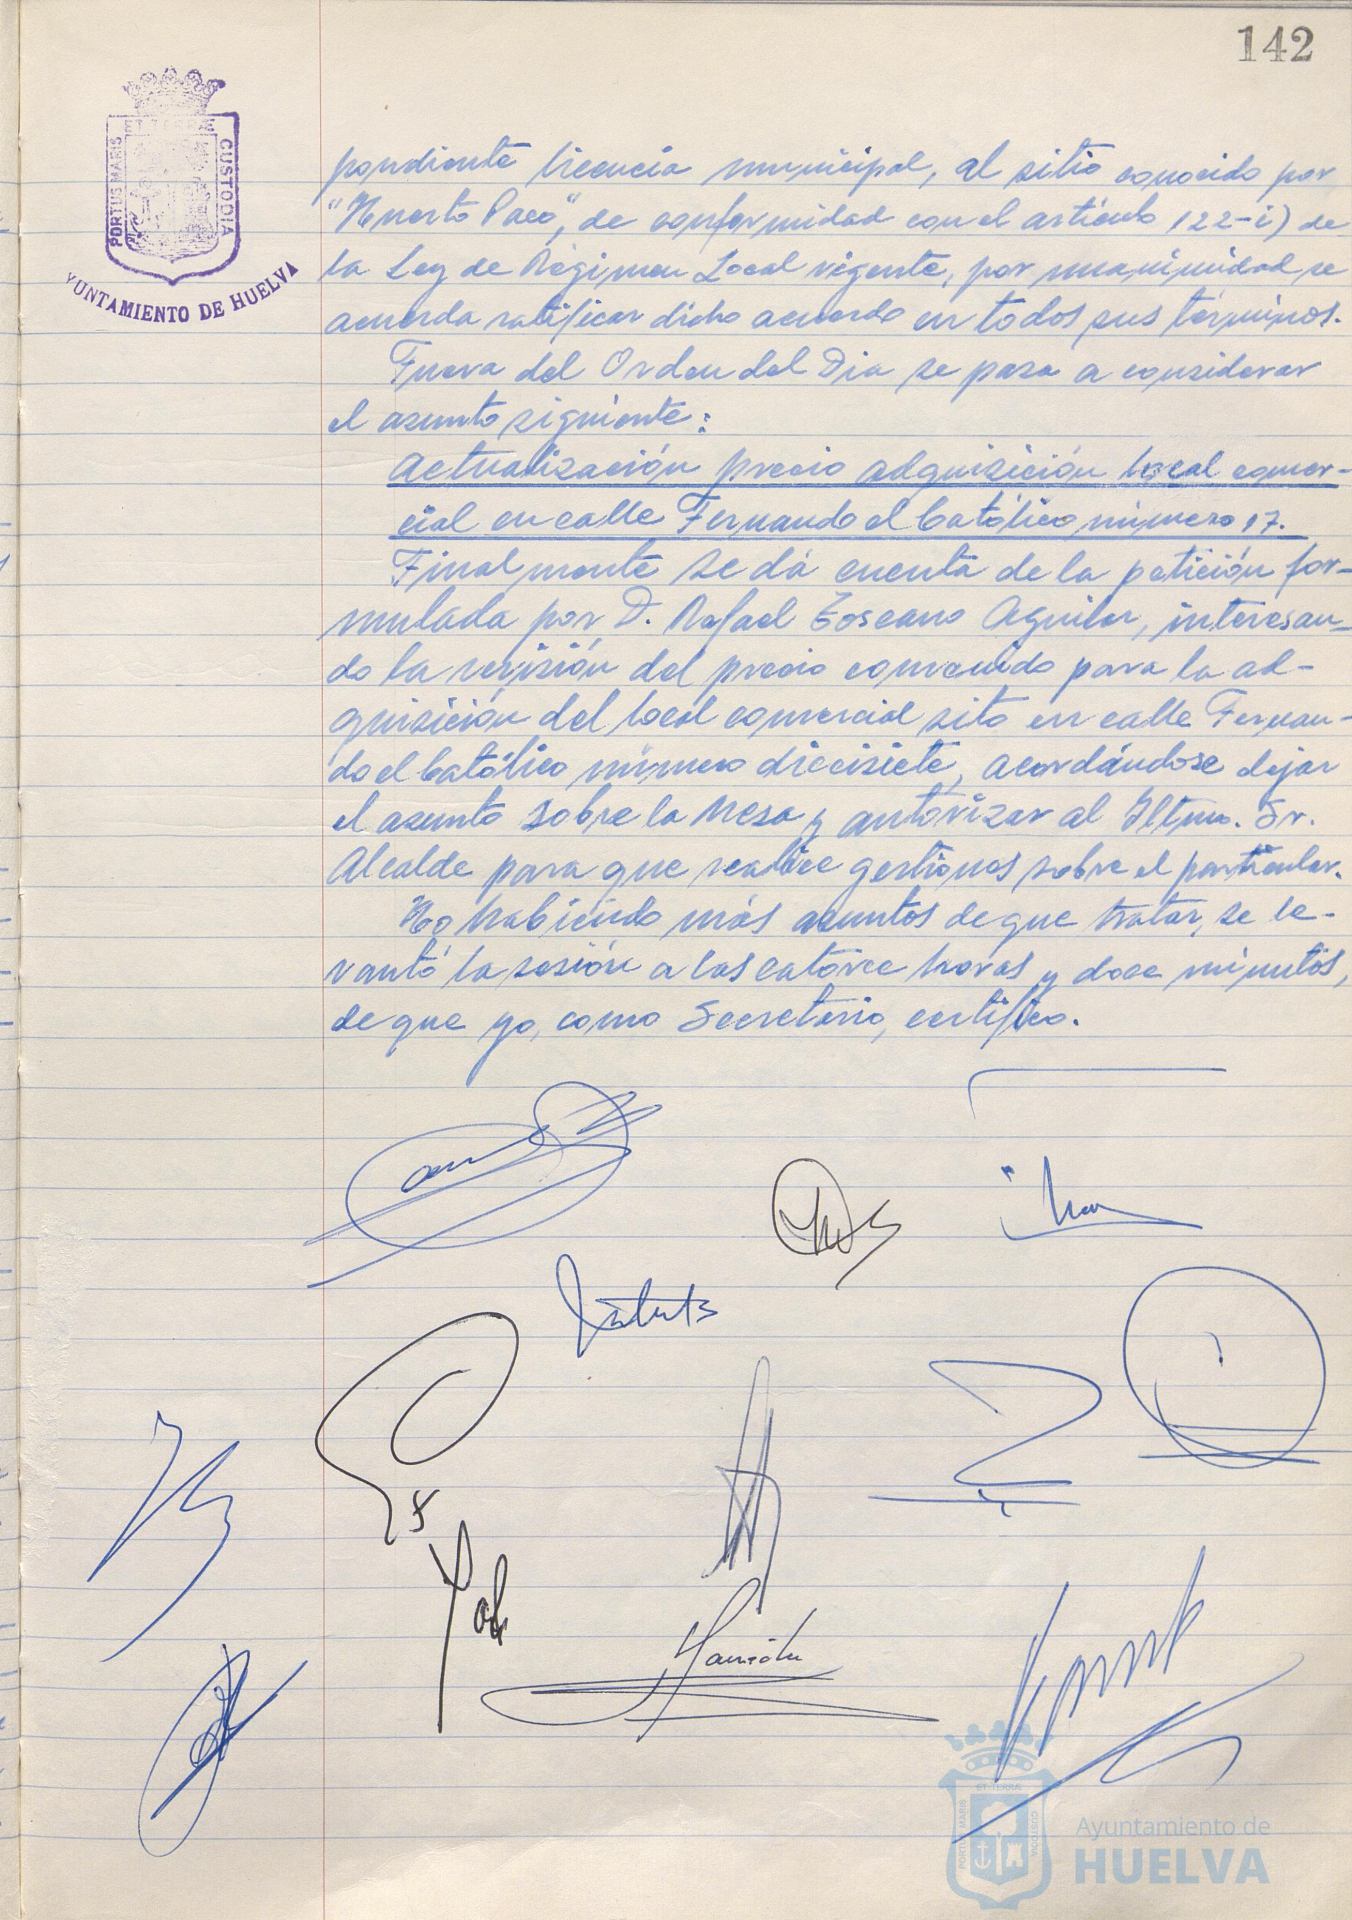 142
PORTUS MARIS ET TERRÆ CUSTODIA
YUNTAMIENTO DE HUELVA
pondiente licencia municipal, al sitio conocido por
"Huerto Paco", de conformidad con el artículo 122-i) de
la Ley de Régimen Local vigente, por unanimidad se
acuerda ratificar dicho acuerdo en todos sus términos.
Fuera del Orden del Dia se pasa a considerar
el asunto siguiente:
Actualización precio adquisición local comer-
cial en calle Fernando el Católico número 17.
Finalmente se dá cuenta de la petición for-
mulada por D. Rafael Toscano Aguilar, interesan-
do la revisión del precio convenido para la ad-
quisición del local comercial sito en calle Fernan-
do el Católico número diecisiete, acordándose dejar
el asunto sobre la Mesa y autorizar al Iltmo. Sr.
Alcalde para que realice gestiones sobre el particular.
No habiendo más asuntos de que tratar, se le-
vantó la sesión a las catorce horas y doce minutos,
de que yo, como Secretario, certifico.
PORTUS MARIS ET TERRÆ CUSTODIA
Ayuntamiento de
HUELVA